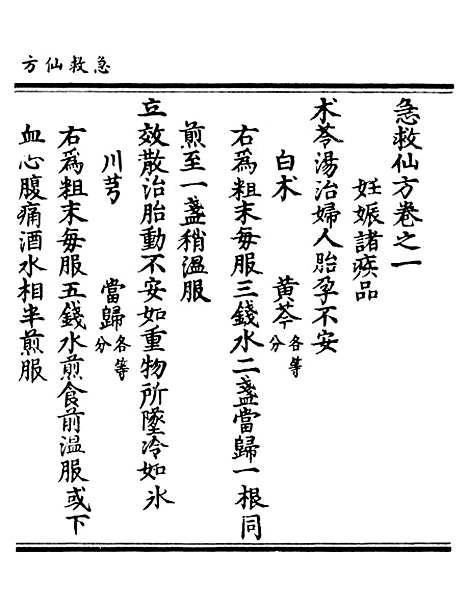 急救仙方
急救仙方卷之一
妊娠諸疾品
朮芩湯治婦人胎孕不安
白朮 黄芩各等分
右為粗末每服三錢水二盞當歸一根同
煎至一盞稍溫服
立效散治胎動不安如重物所墜冷如氷
川芎 當歸各等分
右為粗末每服五錢水煎食前溫服或下
血心腹痛酒水相半煎服